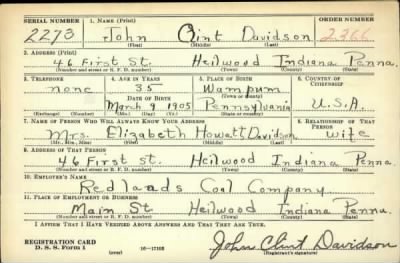 SERIAL NUMBER 1. NAME (Print) ORDER NUMBER
2273 John Clint Davidson 2366
(First) (Middle) (Last)
2. ADDRESS (Print)
46 First St. Heilwood Indiana Penna.
(Number and street or R. F. D. number) (Town) (County) (State)
3. TELEPHONE 4. AGE IN YEARS 5. PLACE OF BIRTH 6. COUNTRY OF CITIZENSHIP
none 35 Wampum
DATE OF BIRTH (Town or county)
March 9 1905 Pennsylvania U.S.A.
(Mo.) (Day) (Yr.) (State or country)
7. NAME OF PERSON WHO WILL ALWAYS KNOW YOUR ADDRESS 8. RELATIONSHIP OF THAT PERSON
Mrs. Elizabeth Howatt Davidson wife
(Mr., Mrs., Miss) (First) (Middle) (Last)
9. ADDRESS OF THAT PERSON
46 First St. Heilwood Indiana Penna.
(Number and street or R. F. D. number) (Town) (County) (State)
10. EMPLOYER'S NAME
Redlands Coal Company
11. PLACE OF EMPLOYMENT OR BUSINESS
Main St Heilwood Indiana Penna.
(Number and street or R. F. D. number) (Town) (County) (State)
I AFFIRM THAT I HAVE VERIFIED ABOVE ANSWERS AND THAT THEY ARE TRUE.
John Clint Davidson
REGISTRATION CARD
D. S. S. Form 1 (over) 16-17105 (Registrant's signature)